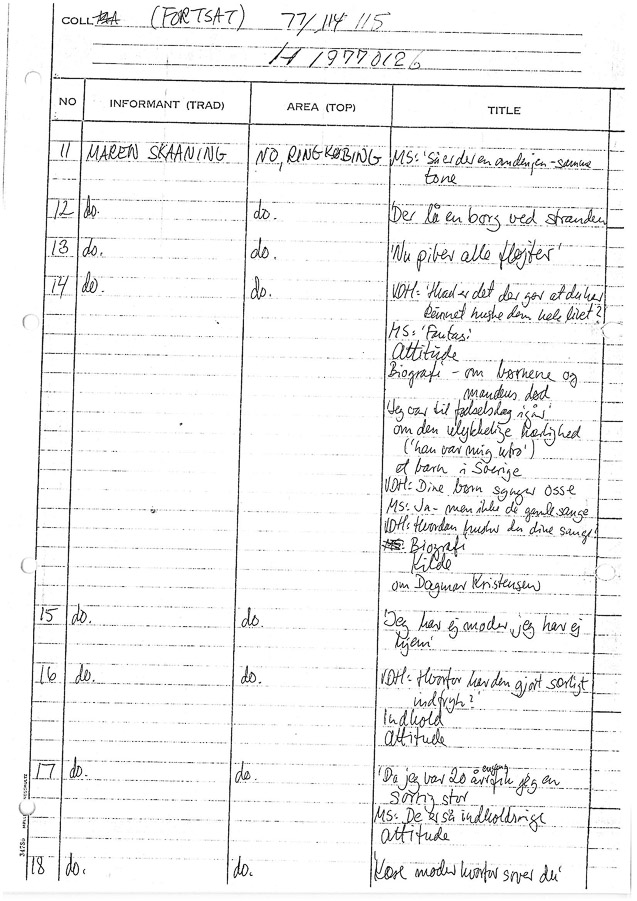 COLL (FORTSAT) 77/114 115
H 19770126
NO INFORMANT (TRAD) AREA (TOP) TITLE
11 MAREN SKAANING NO, RINGKØBING MS: 'Så er der en anden jen - samme
tone
12 do. do. 'Der lå en borg ved stranden
13 do. do. 'Nu piber alle fløjter'
14 do. do. VDH: 'Hvad er det der gør at du har
kunnet huske dem hele livet?
MS: 'Fantasi
Attitude
Biografi - om børnene og
mandens død
'Jeg var til fødselsdag igår'
om den ulykkelige kærlighed
('han var mig utro')
et barn i Sverige
VDH: Dine børn synger osse
MS: Ja - men ikke de gamle sange
VDH: Hvordan husker du dine sange?
Biografi
Kilde
om Dagmar Kristensen
15 do. do. 'Jeg har ej moder, jeg har ej
hjem'
16 do. do. VDH: Hvorfor har den gjort særligt
indtryk?'
indhold
attitude
17 do. do. 'Da jeg var 20 år engang fik jeg en
sorrig stor
MS: De er så indholdsrige
attitude
18 do. do. 'Kære moder hvorfor sover du'